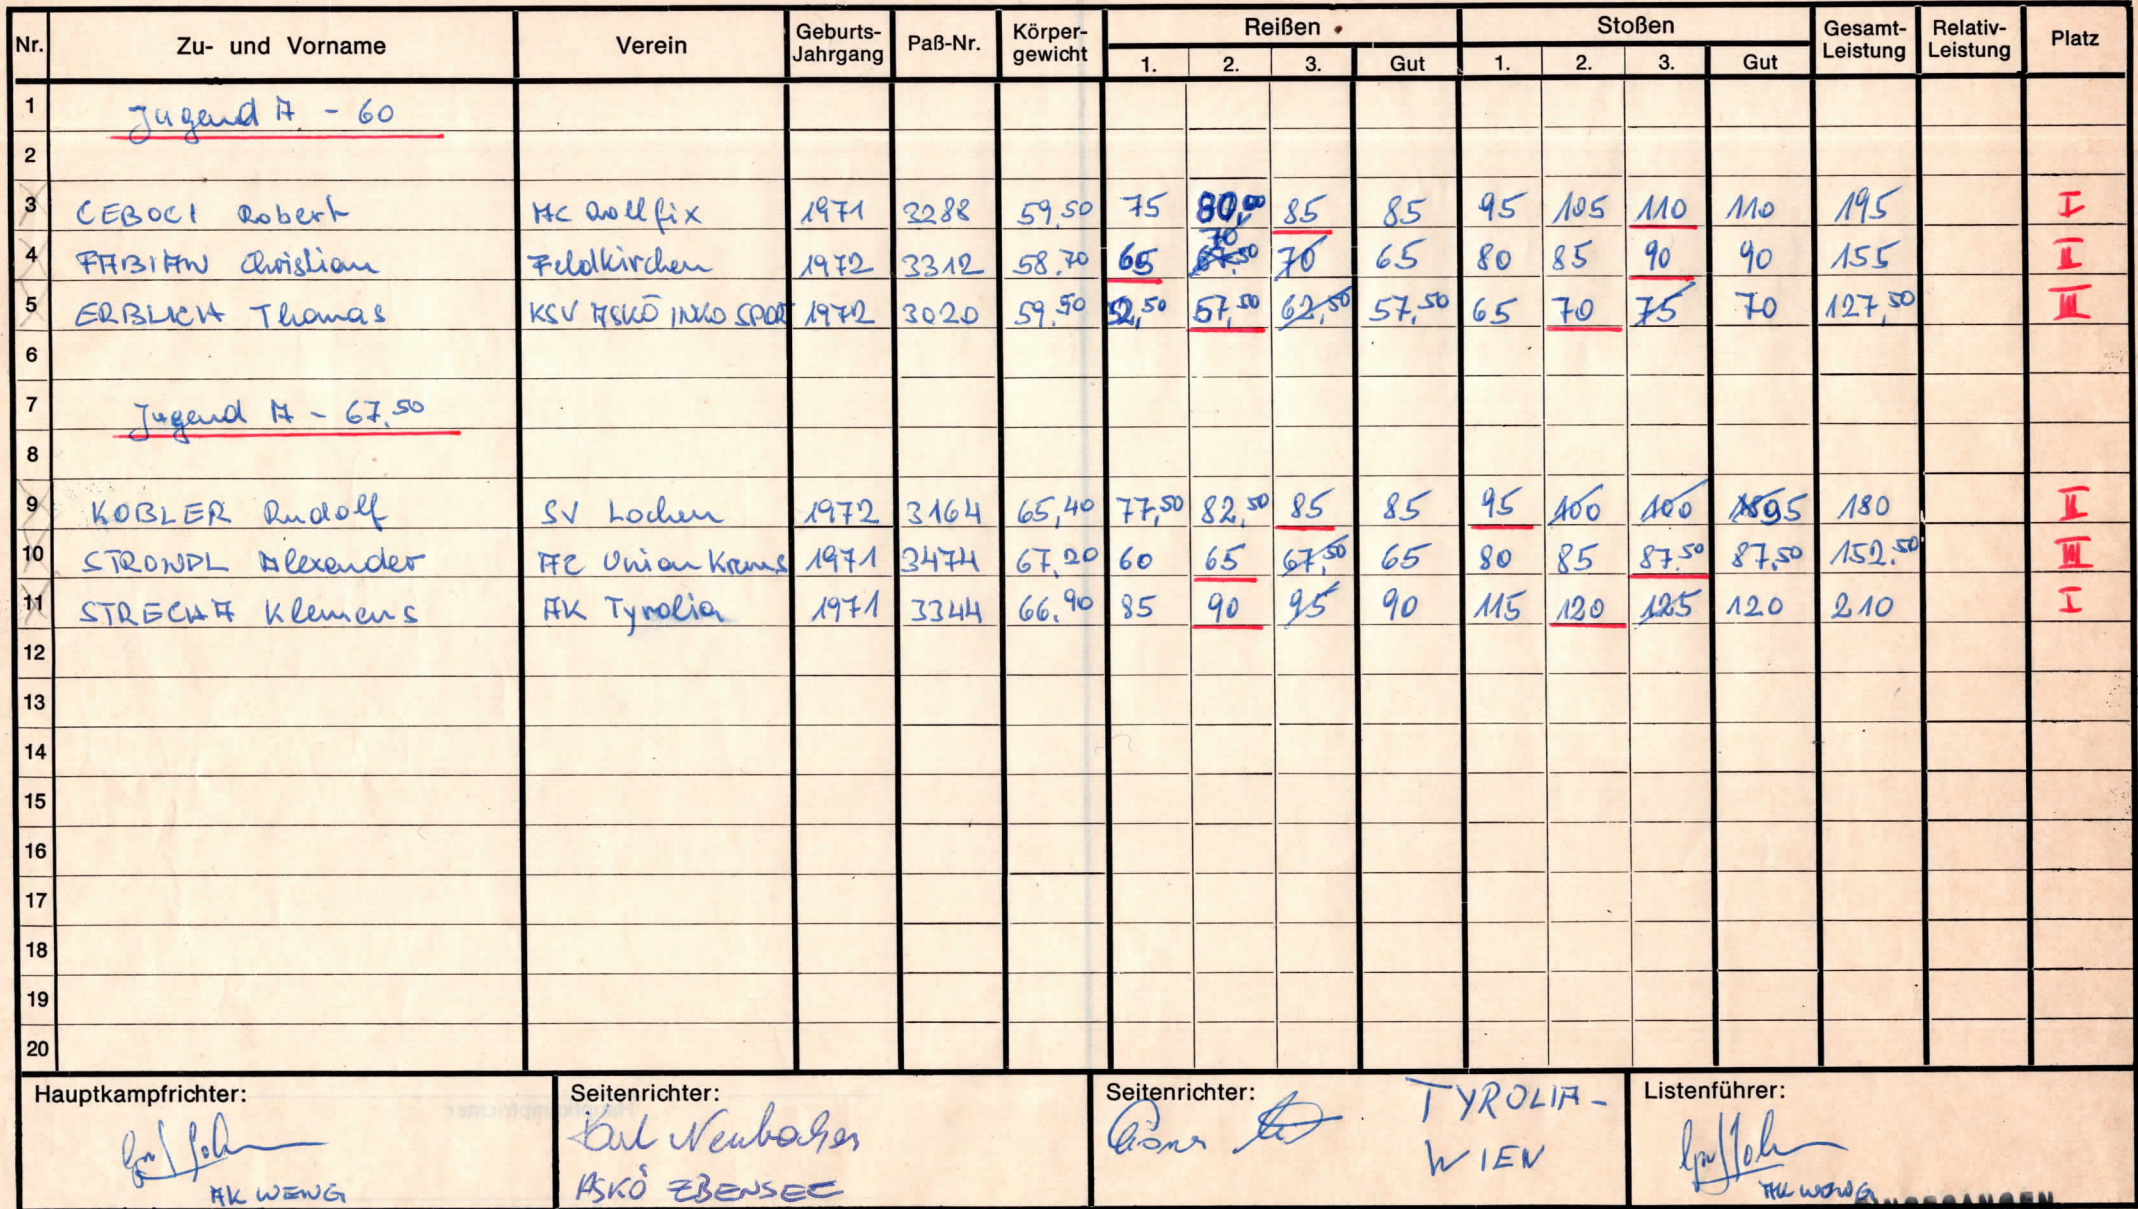 Nr. Zu- und Vorname Verein Geburts-Jahrgang Paß-Nr. Körper-gewicht Reißen Stoßen Gesamt-Leistung Relativ-Leistung Platz
1. 2. 3. Gut 1. 2. 3. Gut
1 Jugend A - 60
2
3 CEBOCI Robert AC Rollfix 1971 3288 59,50 75 80,00 85 85 95 105 110 110 195 I
4 FABIAN Christian Feldkirchen 1972 3312 58,70 65 70 70 65 80 85 90 90 155 II
5 ERBLICH Thomas KSV ASKÖ INKO SPOR 1972 3020 59,50 52,50 57,50 62,50 57,50 65 70 75 70 127,50 III
6
7 Jugend A - 67,50
8
9 KOBLER Rudolf SV Lochen 1972 3164 65,40 77,50 82,50 85 85 95 100 100 95 180 II
10 STRONDL Alexander AC Union Krems 1971 3474 67,20 60 65 67,50 65 80 85 87,50 87,50 152,50 III
11 STRECHA Klemens AK Tyrolia 1971 3344 66,90 85 90 95 90 115 120 125 120 210 I
12
13
14
15
16
17
18
19
20
Hauptkampfrichter: Seitenrichter: Seitenrichter: Listenführer:
Karl Neubacher TYROLIA-
AK WENG ASKÖ EBENSEE WIEN AK WENG